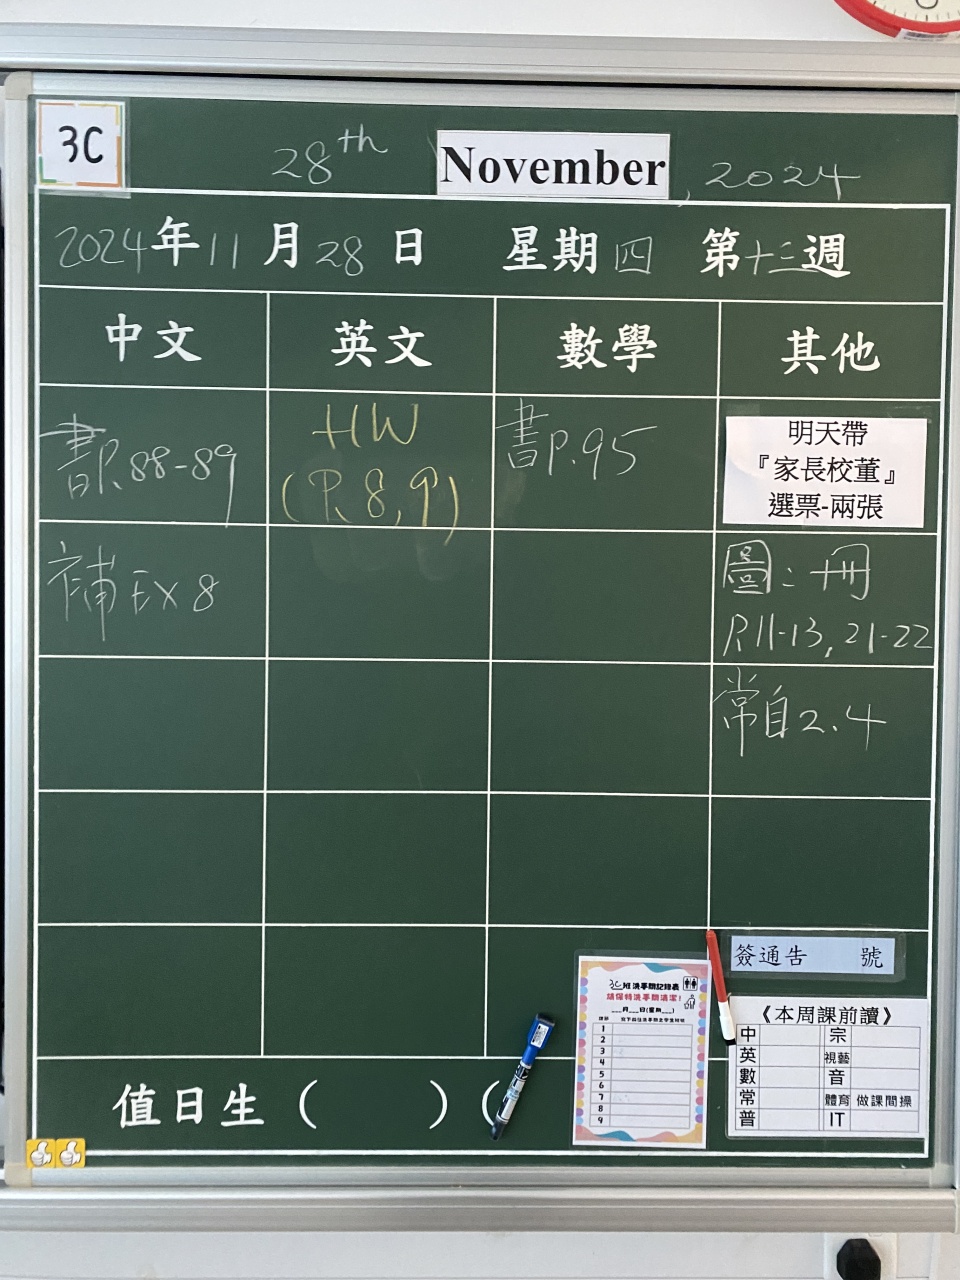 3C
28th November, 2024
2024年11月28日 星期四 第十三週
中文 英文 數學 其他
書P.88-89
HW
(P.8,9)
書P.95
明天帶
『家長校董』
選票-兩張
補Ex 8
圖:一冊
P.11-13, 21-22
常自2.4
簽通告 號
3C班洗手間記錄表
請保持洗手間清潔!
___月___日(星期___)
1
2
3
4
5
6
7
8
9
《本周課前讀》
中 宗
英 視藝
數 音
常 體育 做課間操
普 IT
值日生( )(